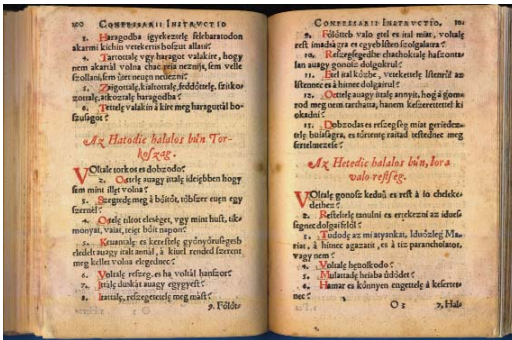 100 CONFESSARII INSTRUCTIO
1. Haragodba igyekeztelę felebaratodon
akarmi kichin vetekertis hoszut allani?
2. Tartottalę vgy haragot valakire, hogy
nem akartál volna chac réia neznijs, sem velle
szollani, sem űtet neuen neuezni?
3. Zúgottalę, kialtottalę, feddőttelę, szitko-
zottalę, atkoztalę haragodba?
4. Tettelę valakin à kire meg haraguttál bo-
szusagot?
Az Hatodic halalos bűn Tor-
koszag.
VOltalę torkos es dobzodo?
2. Ottelę auagy ittalę ideiębben hogy
sem mint illet volna?
3. Szegtedę meg à bőitőt, tőbszer euen egy
szernél?
4. Ottelę tilot eleséget, vgy mint hust, tik-
monyat, vaiat, teiet bőit napon?
5. Keuantalę es kerestelę gyönyörüségesb
eledelt auagy italt annál, à kiuel rended szerent
meg kellet volna elegednec?
6. Voltalę reszeg, es ha voltál hanszor?
7. Ittalę duskát auagy egygyest?
8. Itattalę, reszegetettelę meg mást?
9. Fölöt-
CONFESSARII INSTRUCTIO. 101
9. Fölöttęb valo etel es ital miat, voltalę
rest imadságra es egyeb Isten szolgalatra?
10. Reszegsegedbe chachoktalę haszonta-
lan auagy gonosz dolgokrul?
11. Etel ital közbe, vetekettelę Istenrűl az
Istennec es à hitnec dolgairul?
12. Ottelę auagy ittalę annyit, hog à gomo-
rod meg nem tarthatta, hanem keszerettettel ki
okadni?
13. Dobzodas es reszegség miat geriedez-
telę buiaságra, es törtentę raitad testednec meg
fertelmezese?
Az Hetedic halalos bűn, Iora
valo restség.
VOltalę gonosz keduű es rest à io cheleke-
dethez?
2. Restelletę tanulni es ertekezni az iduos-
ségnec dolgaifelől?
3. Tudodę az mi atyankat, Iduőzleg Ma-
riat, à hitnec agazatit, es à tiz parancholatot,
vagy nem?
4. Voltalę heuolkodo?
5. Mulattadę heiaba űdődet?
6. Hamar es kőnnyen engettelę à kesertet-
nec?
O 3
7. Hal-